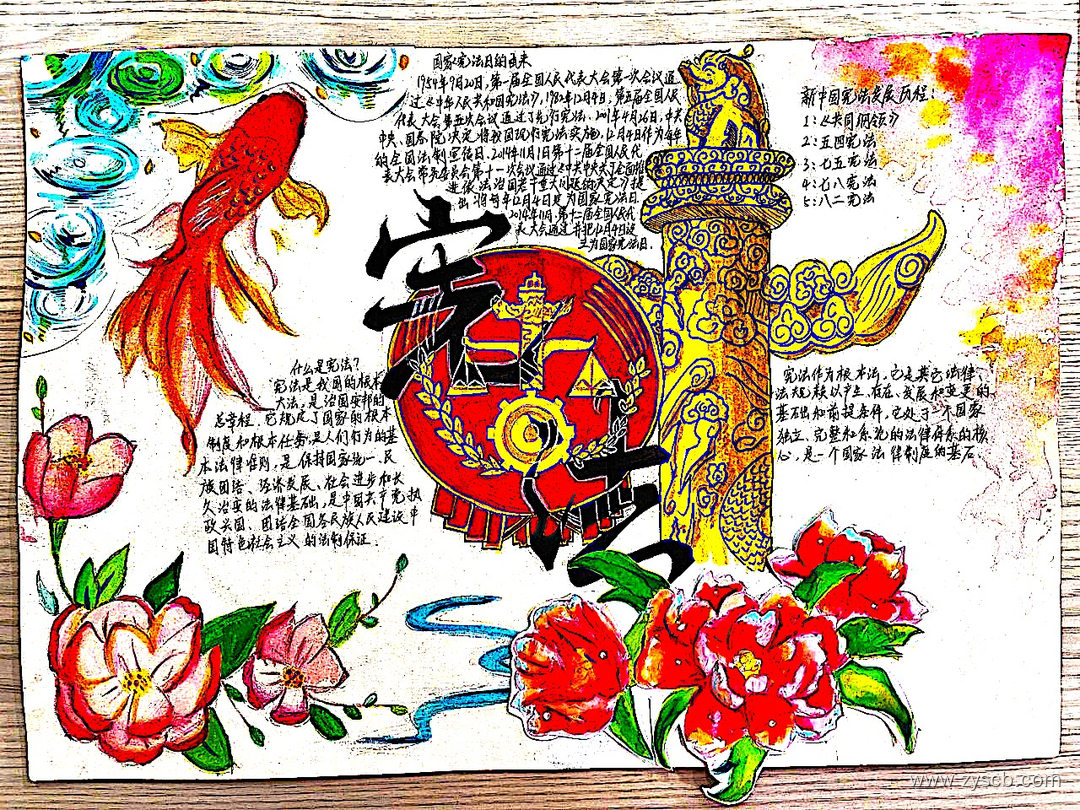 国家宪法日的由来
1954年9月20日,第一届全国人民代表大会第一次会议通
过《中华人民共和国宪法》,1982年12月4日,第五届全国人民
代表大会第五次会议通过了现行宪法、2001年4月26日,中共
中央、国务院决定将我国现行宪法实施,12月4日作为每年
的全国法制宣传日.2014年11月1日第十二届全国人民代
表大会常务委员会第十一次会议通过《中共中央关于全面推
进依法治国若干重大问题的决定》提
出,将每年12月4日定为国家宪法日.
2014年11月,第十二届全国人民代
表大会通过并把12月4日设
立为国家宪法日.
新中国宪法发展历程:
1:《共同纲领》
2:五四宪法
3:七五宪法
4:七八宪法
5:八二宪法
宪法
什么是宪法?
宪法是我国的根本
大法,是治国安邦的
总章程,它规定了国家的根本
制度和根本任务,是人们行为的基
本法律准则,是保持国家统一、民
族团结、经济发展、社会进步和长
久治安的法律基础,是中国共产党执
政兴国、团结全国各民族人民建设中
国特色社会主义的法制保证.
宪法作为根本法,它是其它法律、
法规赖以产生、存在、发展和变更的
基础和前提条件,它处于一个国家
独立、完整和系统的法律体系的核
心,是一个国家法律制度的基石
www.zyscb.com